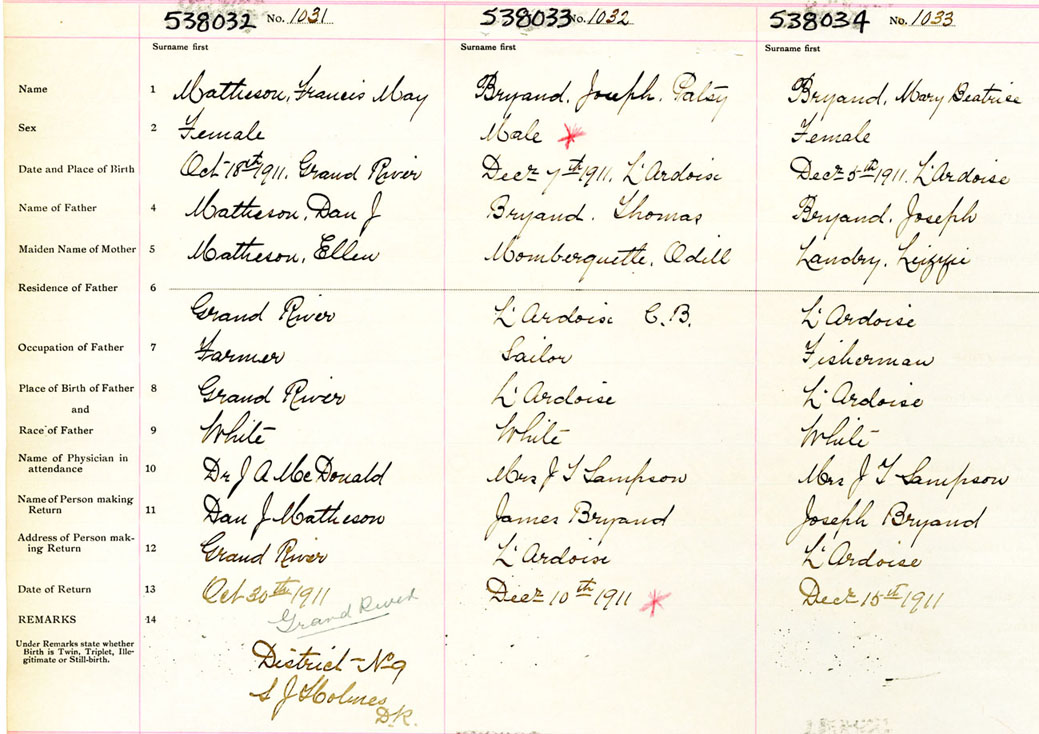 538032 No. 1031 538033 No. 1032 538034 No. 1033
Surname first Surname first Surname first
Name 1 Matheson, Francis May Bryand, Joseph, Patsy Bryand, Mary Beatrice
Sex 2 Female Male Female
Date and Place of Birth Oct 18th 1911, Grand River Decr 7th 1911, L'Ardoise Decr 5th 1911, L'Ardoise
Name of Father 4 Matheson, Dan J Bryand, Thomas Bryand, Joseph
Maiden Name of Mother 5 Matheson, Ellen Momberquette, Odill Landry, Lizzie
Residence of Father 6
Grand River L'Ardoise C.B. L'Ardoise
Occupation of Father 7 Farmer Sailor Fisherman
Place of Birth of Father 8 Grand River L'Ardoise L'Ardoise
and
Race of Father 9 White White White
Name of Physician in
attendance 10 Dr J A McDonald Mrs J T Sampson Mrs J T Sampson
Name of Person making
Return 11 Dan J Matheson James Bryand Joseph Bryand
Address of Person mak-
ing Return 12 Grand River L'Ardoise L'Ardoise
Date of Return 13 Oct 30th 1911 Decr 10th 1911 Decr 15th 1911
REMARKS 14 Grand River
Under Remarks state whether
Birth is Twin, Triplet, Ille-
gitimate or Still-birth.
District No 9
S J Holmes
D.R.